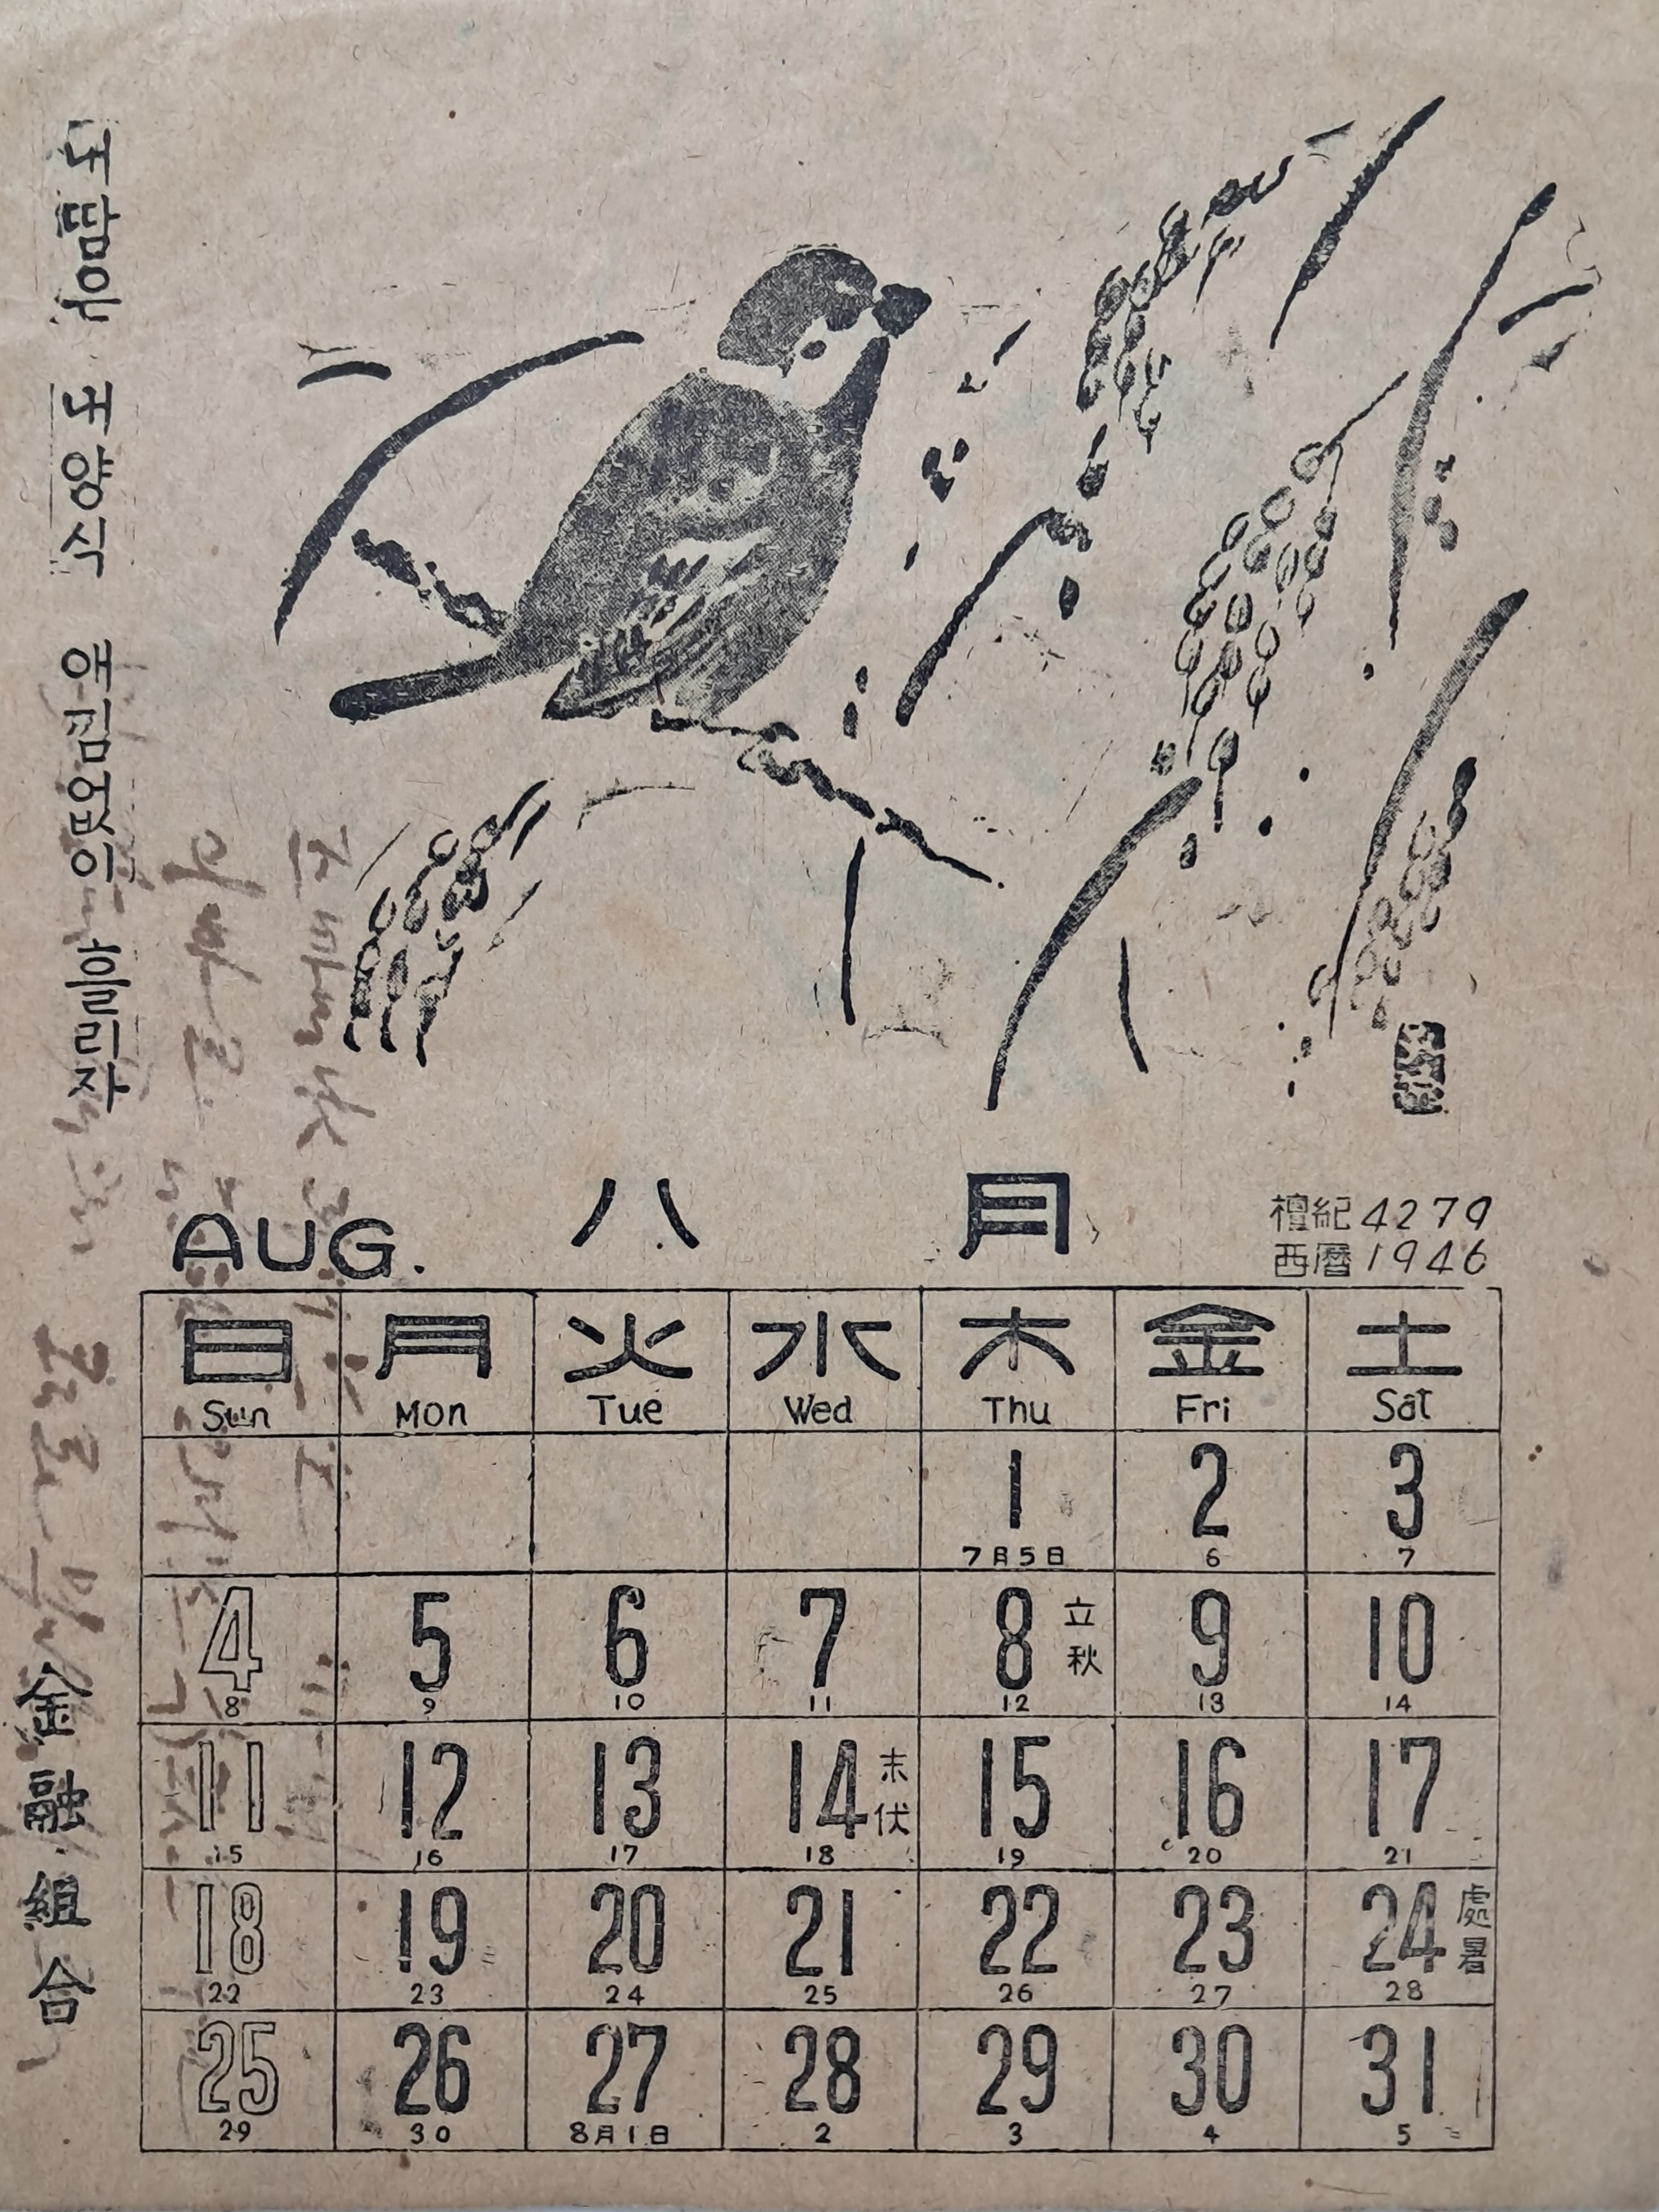 내땀은 내양식 애낌없이 흘리자
AUG. 八 月
檀紀 4279
西曆 1946
日 月 火 水 木 金 土
Sun Mon Tue Wed Thu Fri Sat
1 2 3
7月5日 6 7
4 5 6 7 8 立秋 9 10
8 9 10 11 12 13 14
11 12 13 14 末伏 15 16 17
15 16 17 18 19 20 21
18 19 20 21 22 23 24 處暑
22 23 24 25 26 27 28
25 26 27 28 29 30 31
29 30 8月1日 2 3 4 5
金融組合